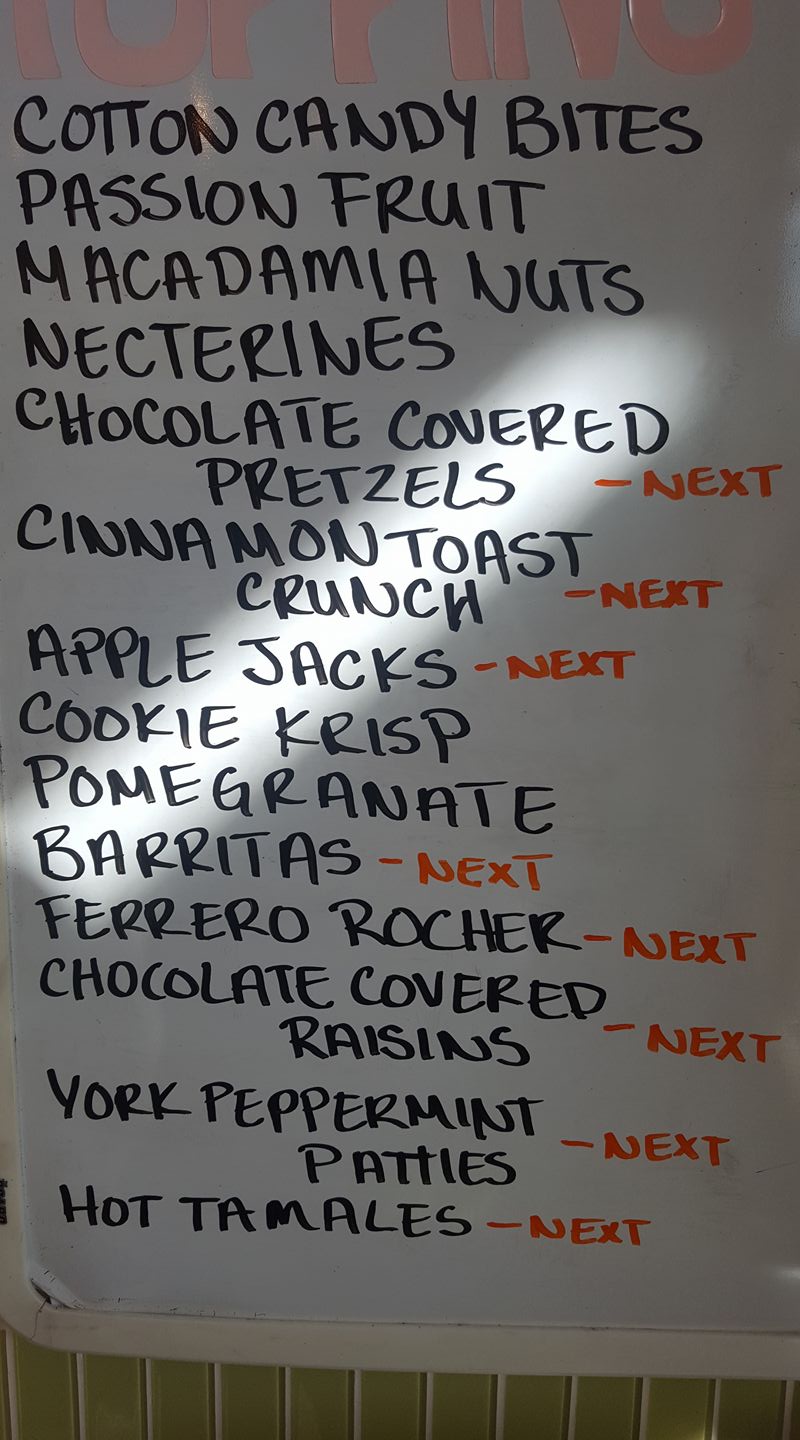 TOPPING
COTTON CANDY BITES
PASSION FRUIT
MACADAMIA NUTS
NECTERINES
CHOCOLATE COVERED
PRETZELS - NEXT
CINNAMON TOAST
CRUNCH - NEXT
APPLE JACKS - NEXT
COOKIE KRISP
POMEGRANATE
BARRITAS - NEXT
FERRERO ROCHER - NEXT
CHOCOLATE COVERED
RAISINS - NEXT
YORK PEPPERMINT
PATTIES - NEXT
HOT TAMALES - NEXT